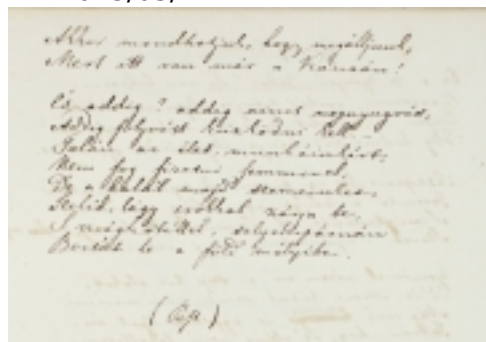 Akkor mondhatjuk, hogy megálljunk,
Mert itt van már a Kánaán!
És addig? addig nincs megnyugvás,
Addig folyvást küszködni kell.
Talán az élet, munkáinkért,
Nem fog fizetni semmivel,
De a halál majd szemeinket
Szelíd, lágy csókkal zárja be,
S virágkötéllel, selyempárnán
Bocsát le a föld mélyibe.
(Pest)